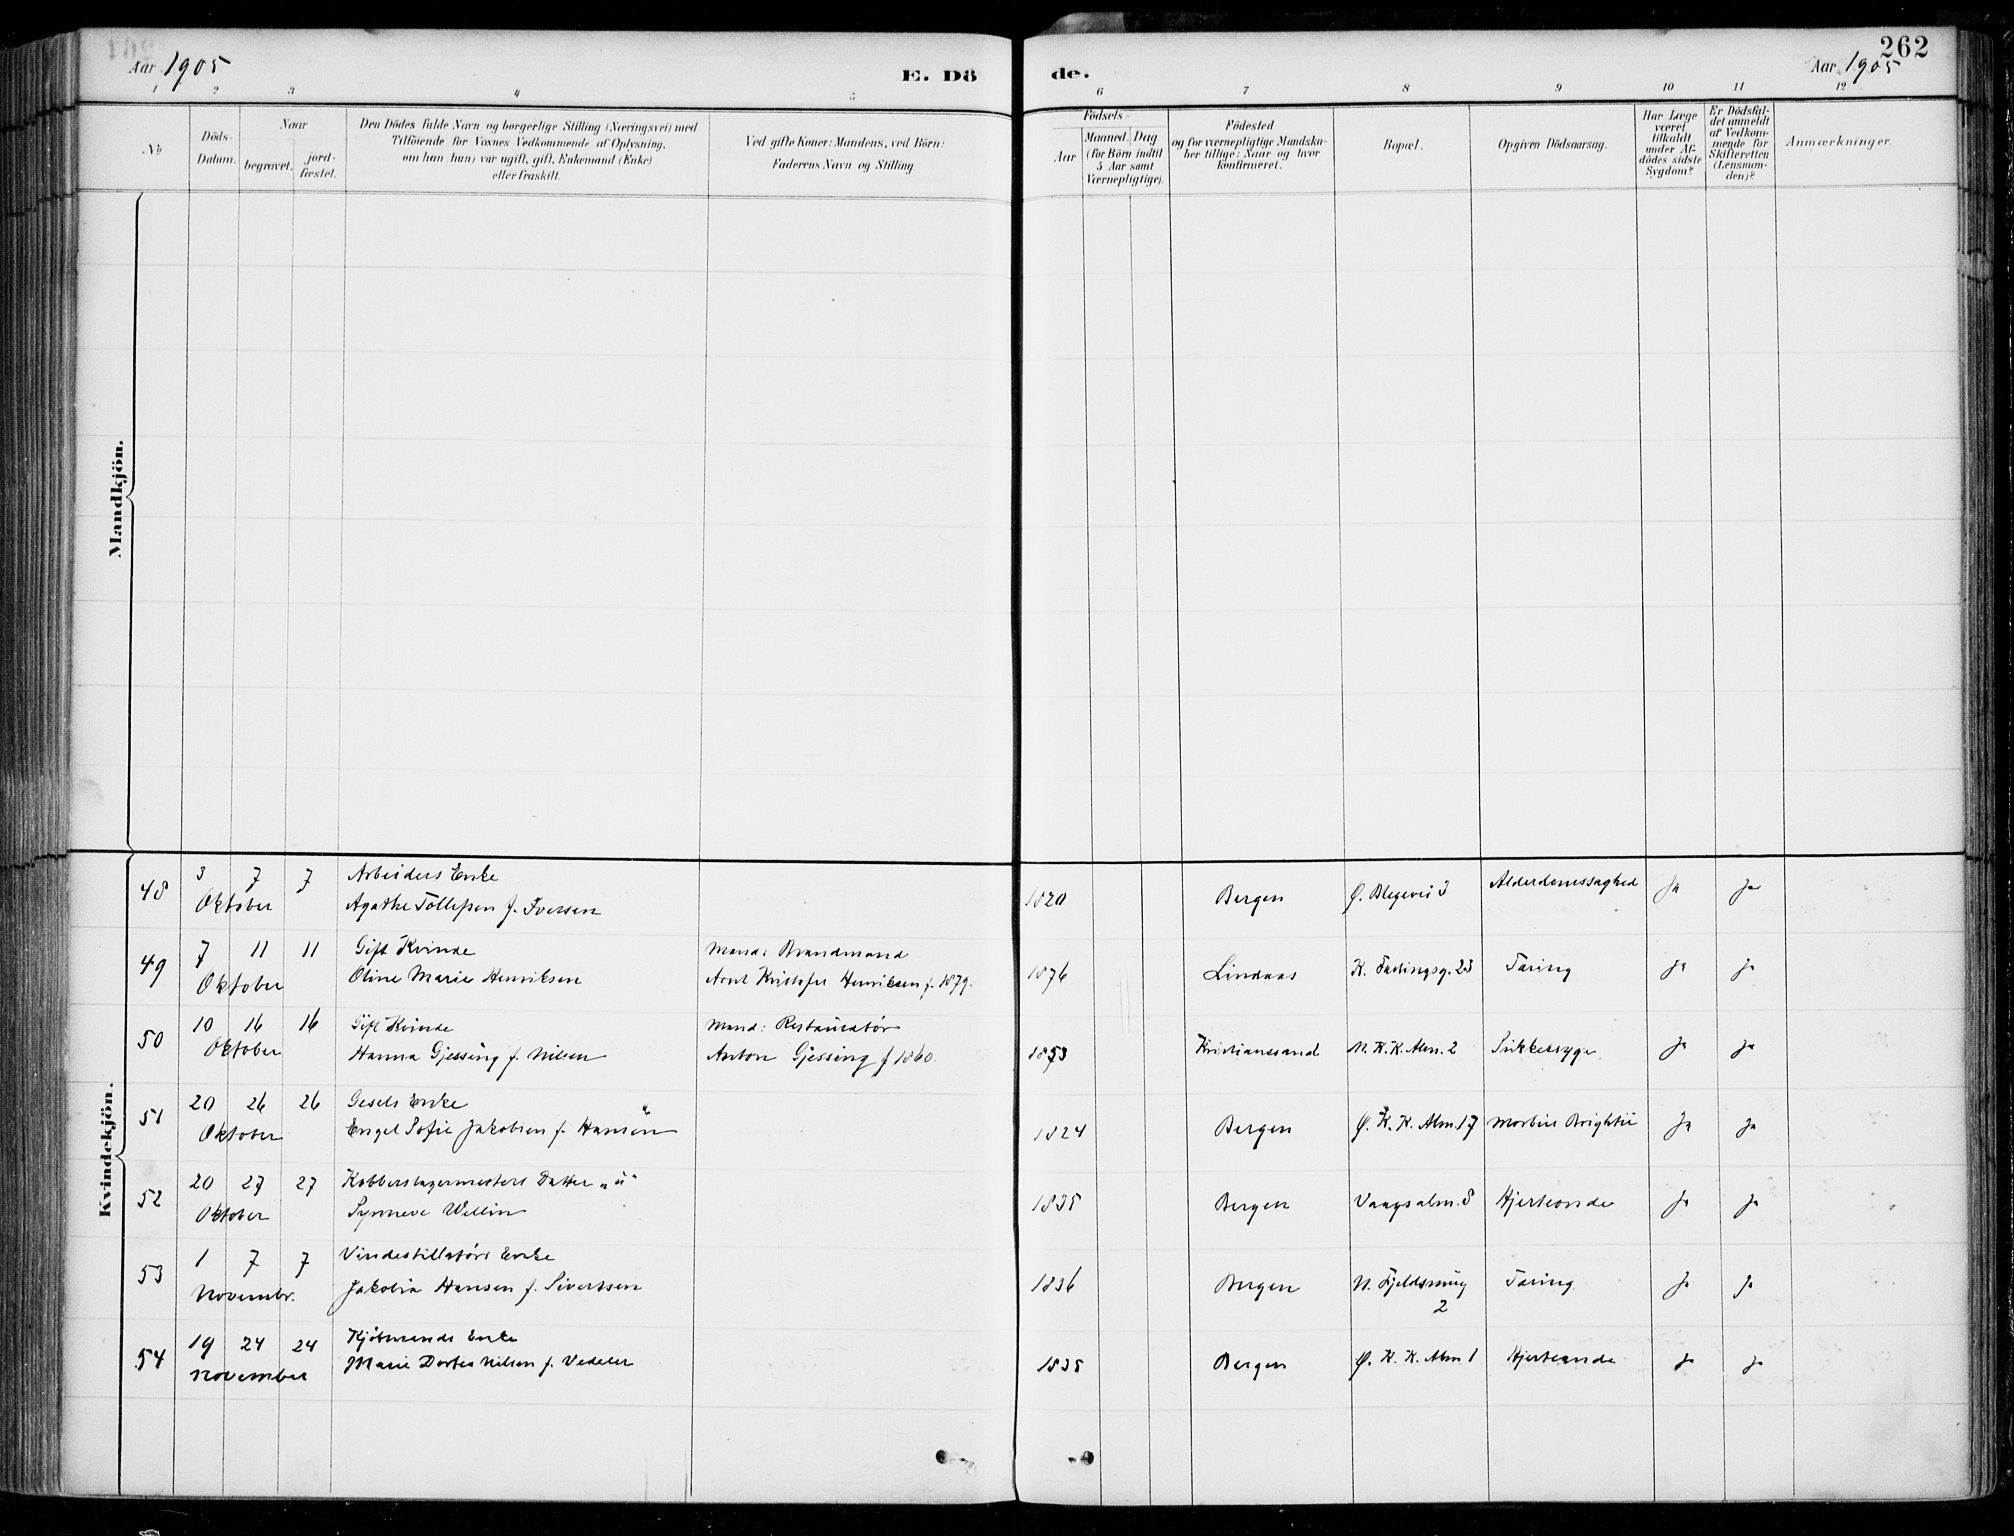 262
Aar 1905
E. Dö
de.
Aar 1905
1 2 3 4 5
6 7 8 9 10 11 12
No
Döds-
Datum.
Naar
begravet.
jord-
fæstet.
Den Dödes fulde Navn og borgerlige Stilling (Næringsvei) med
Tilföiende for Voxnes Vedkommende af Oplysning,
om han (hun) var ugift, gift, Enkemand (Enke)
eller fraskilt.
Ved gifte Koner: Mandens, ved Börn:
Faderens Navn og Stilling.
Födsels-
Aar
Maaned. Dag
(for Börn indtil
5 Aar samt
Værnepligtige).
Födested
og for værnepligtige Mandska-
ber tillige: Naar og hvor
konfirmeret.
Bopæl.
Opgiven Dödsaarsag.
Har Læge
været
tilkaldt
under Af-
dödes sidste
Sygdom?
Er Dödsfal-
det anmeldt
af Vedkom-
mende for
Skifteretten
(Lensman-
den)?
Anmærkninger.
Mandkjön.
Kvindekjön.
48 3 7 7 Arbeiders Enke
Oktober Agathe Tollefsen f. Iversen 1820 Bergen Ø. Blegevei 3 Alderdomssvaghed Ja Ja
49 7 11 11 Gift Kvinde Mand: Brandmand
Oktober Oline Marie Henriksen Arnt Kristofer Henriksen f. 1879. 1876 Lindaas K. Fastingsg. 23 Tæring Ja Ja
50 10 16 16 Gift Kvinde Mand: Restauratør
Oktober Hanna Gjessing f. Nilsen Anton Gjessing f 1860 1853 Kristianssand N. K. K. Alm. 2 Sukkersyge Ja Ja
51 20 26 26 Gesels Enke
Oktober Engel Sofie Jakobsen f. Hansen 1824 Bergen Ø. K. K. Alm. 17 Morbus Brightii Ja Ja
52 20 27 27 Kobberslagermesters Datter "u"
Oktober Synneve Wellin 1835 Bergen Vaagsalm. 8 Hjerteonde Ja Ja
53 1 7 7 Vindestillatørs Enke
Novembr. Jakobia Hansen f. Sivertsen 1836 Bergen N. Fjeldsmug 2 Tæring Ja Ja
54 19 24 24 Kjøbmands Enke
November Marie Dortea Nilsen f. Vedeler 1835 Bergen Ø. K. K. Alm 1 Hjerteonde Ja Ja